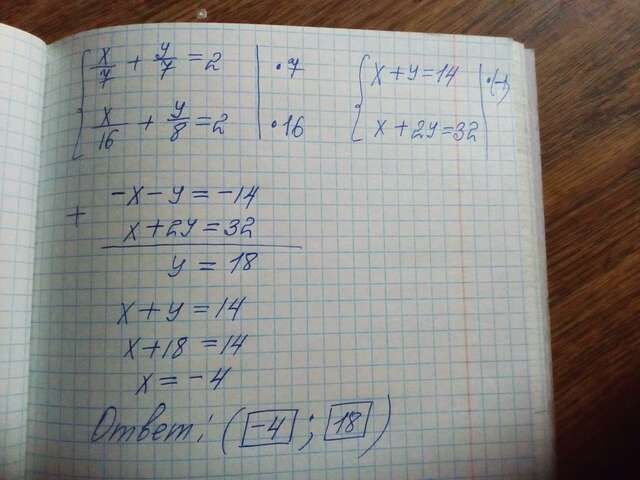 x/7 + y/7 = 2 | ·7
x/16 + y/8 = 2 | ·16
x + y = 14 | ·(-1)
x + 2y = 32
+ -x - y = -14
x + 2y = 32
y = 18
x + y = 14
x + 18 = 14
x = -4
Ответ: (-4; 18)